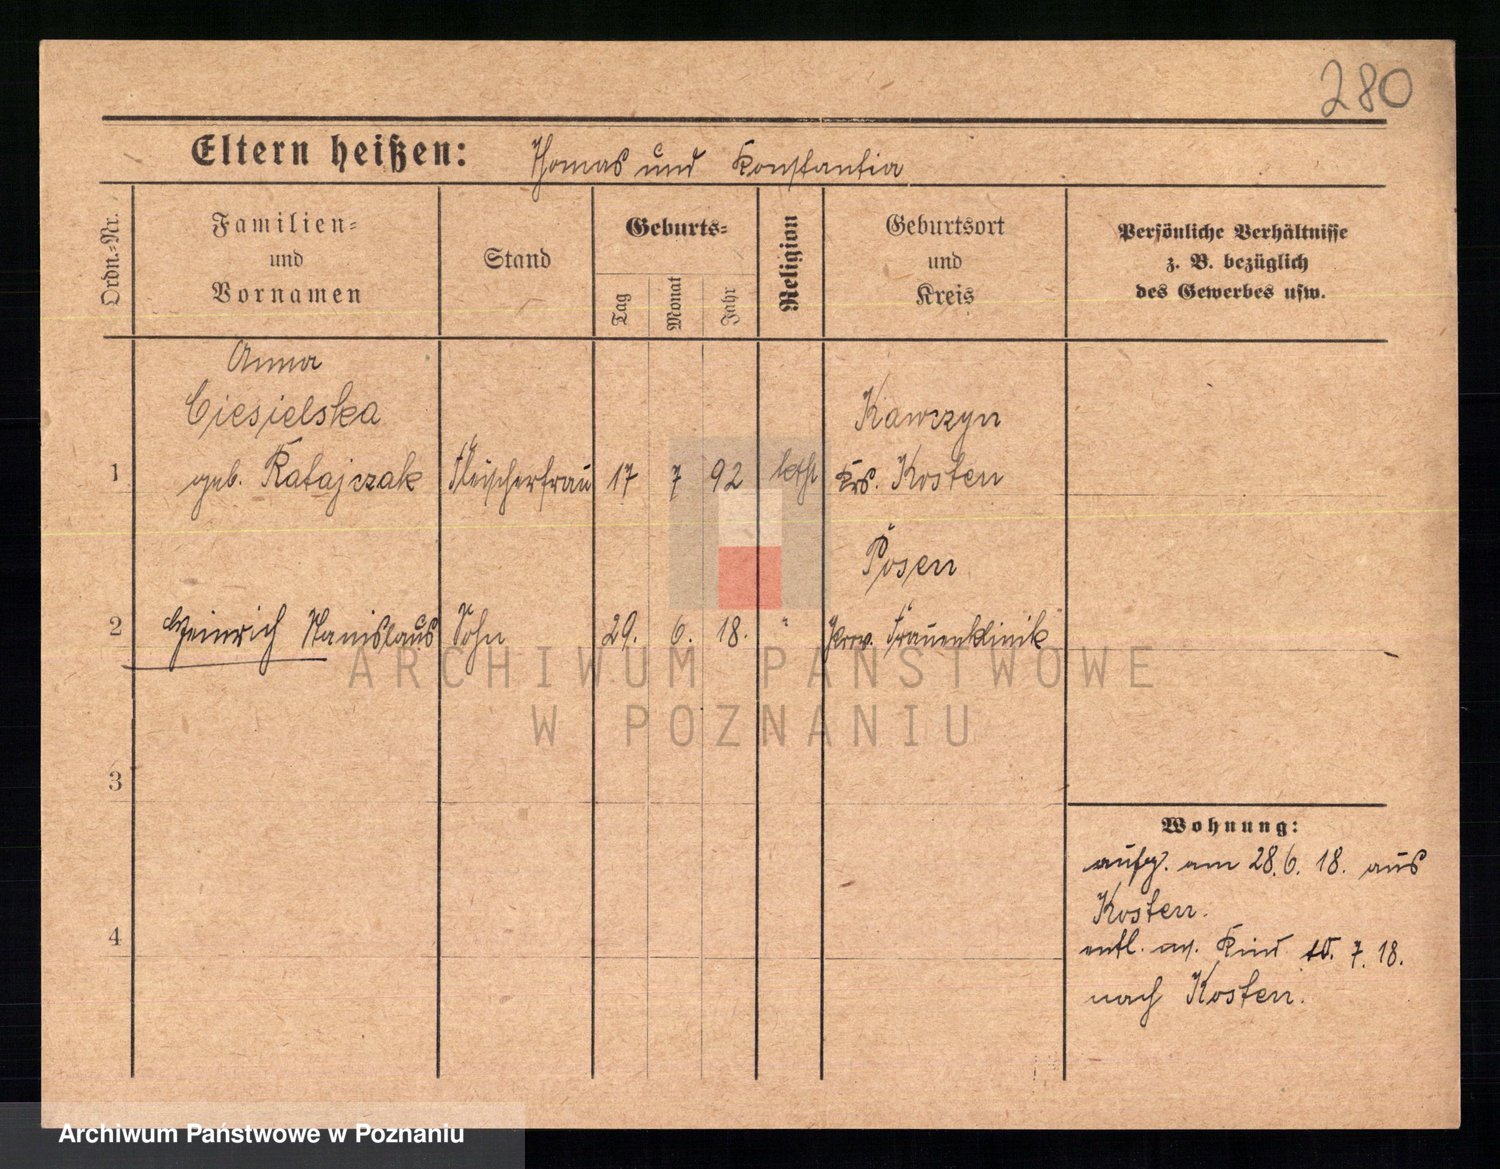 280
Eltern heißen: Thomas und Konstantia
Ordn.=Nr.
Familien=
und
Vornamen
Stand
Geburts=
Tag
Monat
Jahr
Religion
Geburtsort
und
Kreis
Persönliche Verhältnisse
z. B. bezüglich
des Gewerbes usw.
Anna
Ciesielska
1 geb. Ratajczak Fleischerfrau 17 7 92 kath
Kawczyn
Krs. Kosten
Posen
2 Heinrich Stanislaus Sohn 29. 6. 18. " Prov. Frauenklinik
3
4
Wohnung:
aufg. am 28.6.18. aus
Kosten.
entl. m. Kind 10.7.18.
nach Kosten.
ARCHIWUM PAŃSTWOWE
W POZNANIU
Archiwum Państwowe w Poznaniu